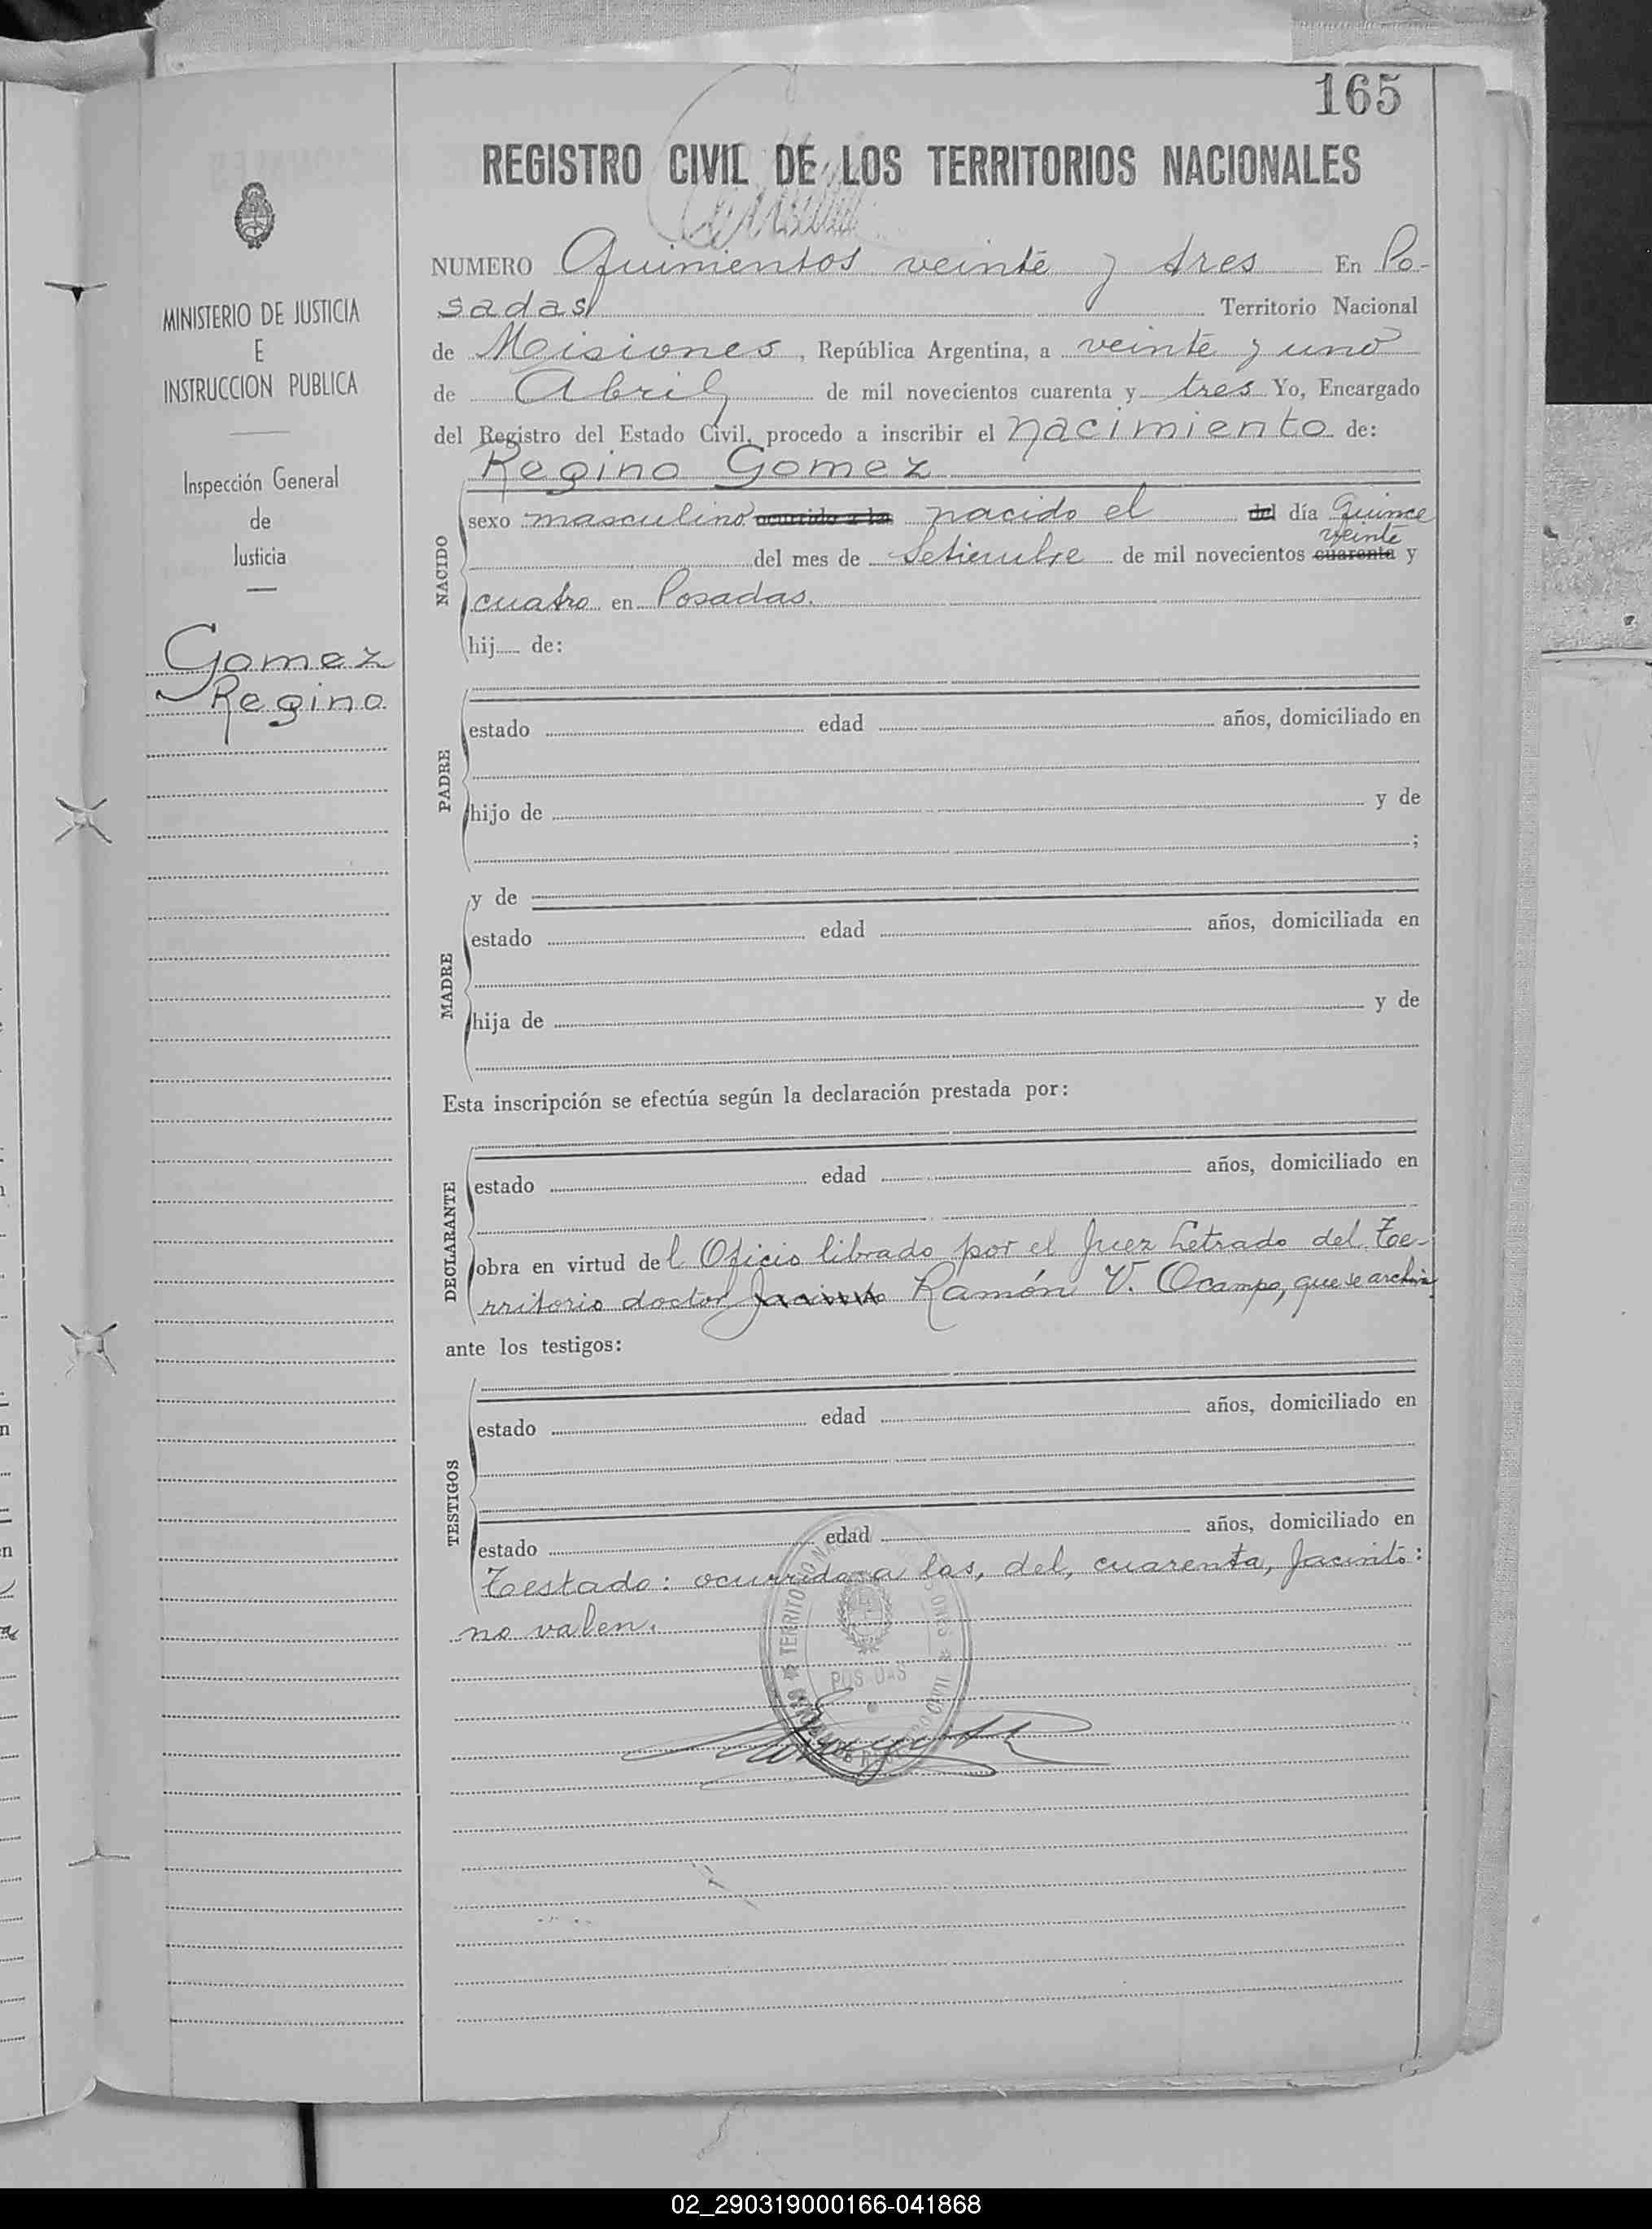 165
REGISTRO CIVIL DE LOS TERRITORIOS NACIONALES
MINISTERIO DE JUSTICIA
E
INSTRUCCION PUBLICA
Inspección General
de
Justicia
Gomez
Regino
NUMERO Quinientos veinte y tres En Po-
sadas Territorio Nacional
de Misiones, República Argentina, a veinte y uno
de Abril de mil novecientos cuarenta y tres Yo, Encargado
del Registro del Estado Civil, procedo a inscribir el nacimiento de:
Regino Gomez
NACIDO
sexo masculino ocurrido a las nacido el del día quince
veinte
del mes de Setiembre de mil novecientos cuarenta y
cuatro en Posadas.
hij de:
PADRE
estado edad años, domiciliado en
hijo de y de
;
MADRE
y de
estado edad años, domiciliada en
hija de y de
Esta inscripción se efectúa según la declaración prestada por:
DECLARANTE
estado edad años, domiciliado en
obra en virtud del Oficio librado por el Juez Letrado del Te-
rritorio doctor Jacinto Ramón V. Ocampo, que se archiva
ante los testigos:
TESTIGOS
estado edad años, domiciliado en
estado edad años, domiciliado en
Testado: ocurrido a las, del, cuarenta, Jacinto:
no valen.
POSADAS
02_290319000166-041868